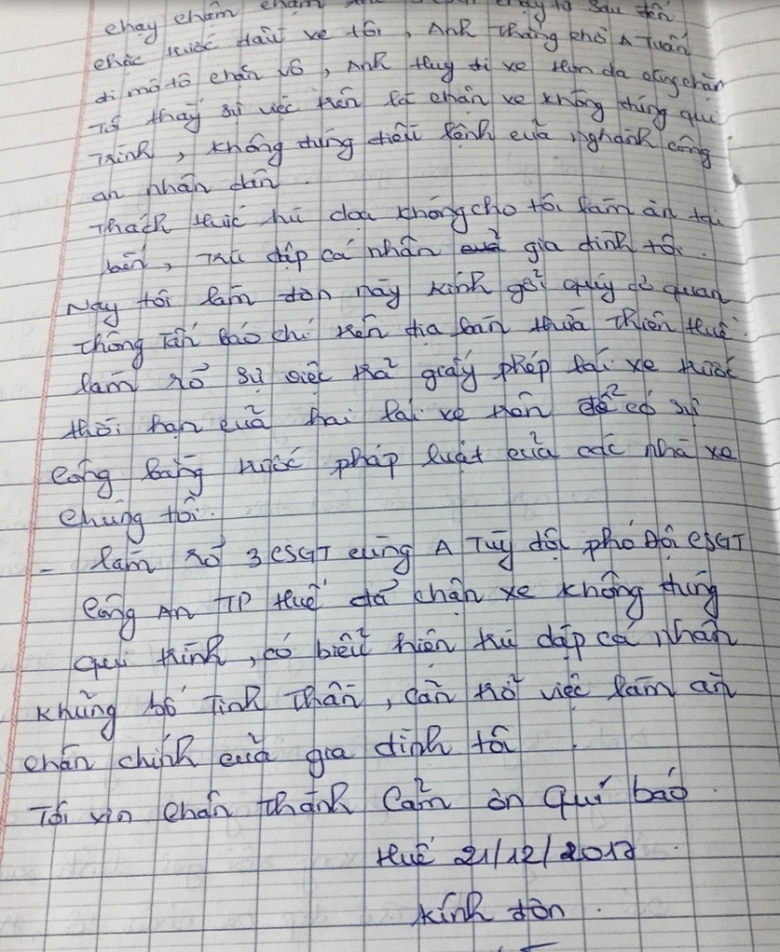 chạy chậm chậm sau đến
chặc trước đầu xe tôi, Anh Thắng chở A Tuấn
đi mô tô chấn vô, Anh Huy đi xe Hon da cũng chặn
Tôi thấy sự việc trên là chặn xe không đúng qui
Trình, không đúng điều lệnh của nghành công
an nhân dân.
Thách thức hù doạ không cho tôi làm ăn tại
bến, Trù dập cá nhân gia đình tôi.
Nay tôi làm đơn này kính gởi quý cơ quan
Thông Tấn báo chí trên địa bàn thừa Thiên Huế.
làm rỏ sự việc trả giấy phép lái xe trước
thời hạn của hai tài xe trên để có sự
công bằng trước pháp luật của các nhà xe
chúng tôi.
- làm rỏ 3 CSGT cùng A Tuý đội phó Đội CSGT
Công An TP Huế đã chặn xe không đúng
qui trình, có biểu hiện trù dập cá nhân
khủng bố Tinh Thần, cản trở việc làm ăn
chân chính của gia đình tôi
Tôi xin chân thành Cảm ơn Quí báo.
Huế 21/12/2017.
Kính đơn.